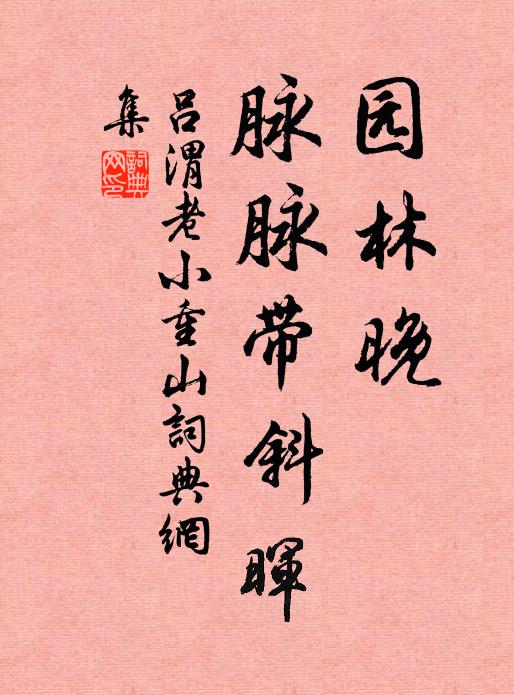 园林晚
脉脉带斜暉
吕渭老小重山詞典網
集
詞典网印